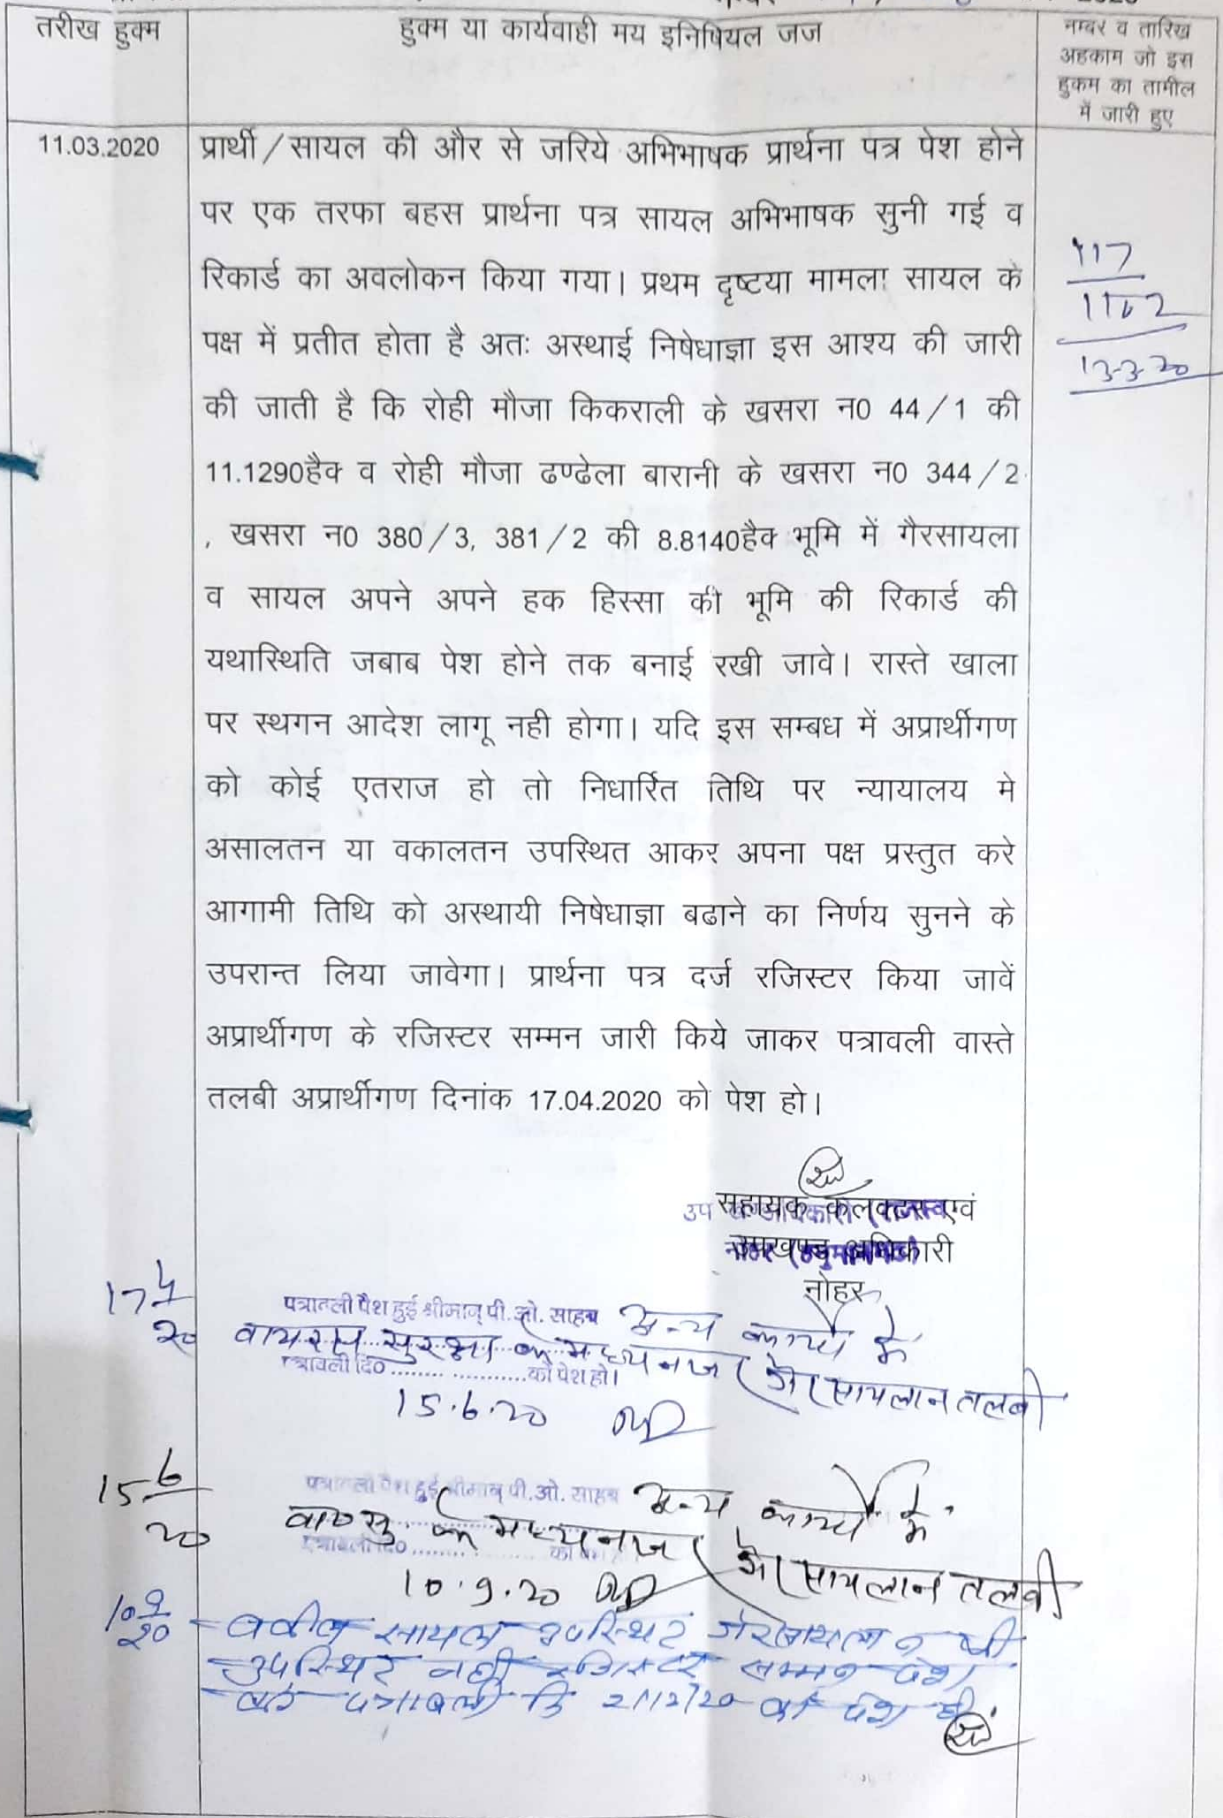 तरीख हुक्म
हुक्म या कार्यवाही मय इनिषियल जज
नम्बर व तारिख
अहकाम जो इस
हुकम का तामील
में जारी हुए
11.03.2020
प्रार्थी/सायल की और से जरिये अभिभाषक प्रार्थना पत्र पेश होने
पर एक तरफा बहस प्रार्थना पत्र सायल अभिभाषक सुनी गई व
रिकार्ड का अवलोकन किया गया। प्रथम दृष्टया मामला सायल के
पक्ष में प्रतीत होता है अतः अस्थाई निषेधाज्ञा इस आश्य की जारी
की जाती है कि रोही मौजा किकराली के खसरा न0 44/1 की
11.1290हैक व रोही मौजा ढण्ढेला बारानी के खसरा न0 344/2
, खसरा न0 380/3, 381/2 की 8.8140हैक भूमि में गैरसायला
व सायल अपने अपने हक हिस्सा की भूमि की रिकार्ड की
यथास्थिति जबाब पेश होने तक बनाई रखी जावे। रास्ते खाला
पर स्थगन आदेश लागू नही होगा। यदि इस सम्बध में अप्रार्थीगण
को कोई एतराज हो तो निधार्रित तिथि पर न्यायालय मे
असालतन या वकालतन उपस्थित आकर अपना पक्ष प्रस्तुत करे
आगामी तिथि को अस्थायी निषेधाज्ञा बढाने का निर्णय सुनने के
उपरान्त लिया जावेगा। प्रार्थना पत्र दर्ज रजिस्टर किया जावें
अप्रार्थीगण के रजिस्टर सम्मन जारी किये जाकर पत्रावली वास्ते
तलबी अप्रार्थीगण दिनांक 17.04.2020 को पेश हो।
13-3-20
सहायक कलक्टर एवं
उपखण्ड अधिकारी
नोहर
17 4
20
पत्रावली पेश हुई श्रीमान् पी.ओ. साहब अन्य कार्यो के
वायरस सुरक्षा के मध्यनजर गैरसायलान तलबी
पत्रावली दि0 ........ को पेश हो।
15.6.20
15 6
20
पत्रावली पेश हुई श्रीमान् पी.ओ. साहब अन्य कार्यो के
के मध्यनजर गैरसायलान तलबी
10.9.20
10 9
20
वकील सायल उपस्थित गैरसायलान
उपस्थित नही रजिस्टर सम्मन पेश
करे पत्रावली दि 2/12/20 को पेश हो